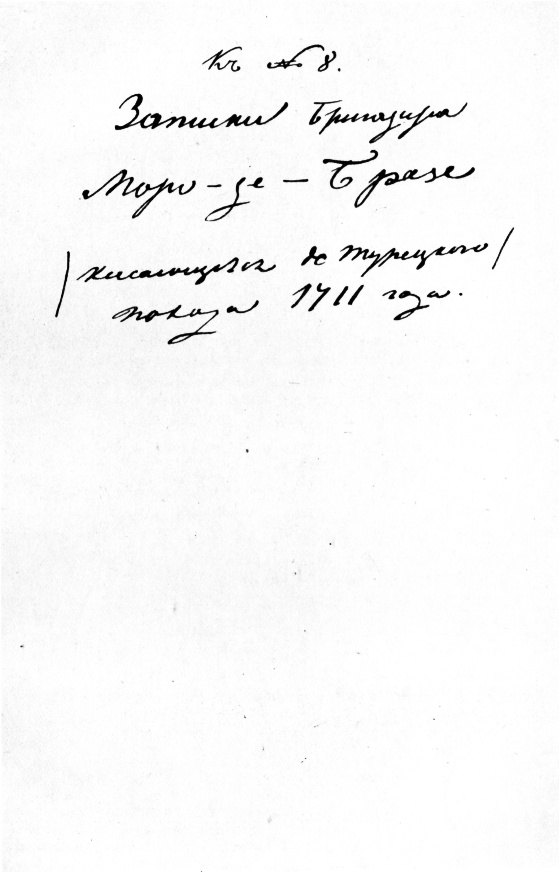 Къ № 8.
Записки Бригадира
Моро-де-Бразе
/касающіяся до Турецкого/
похода 1711 года.